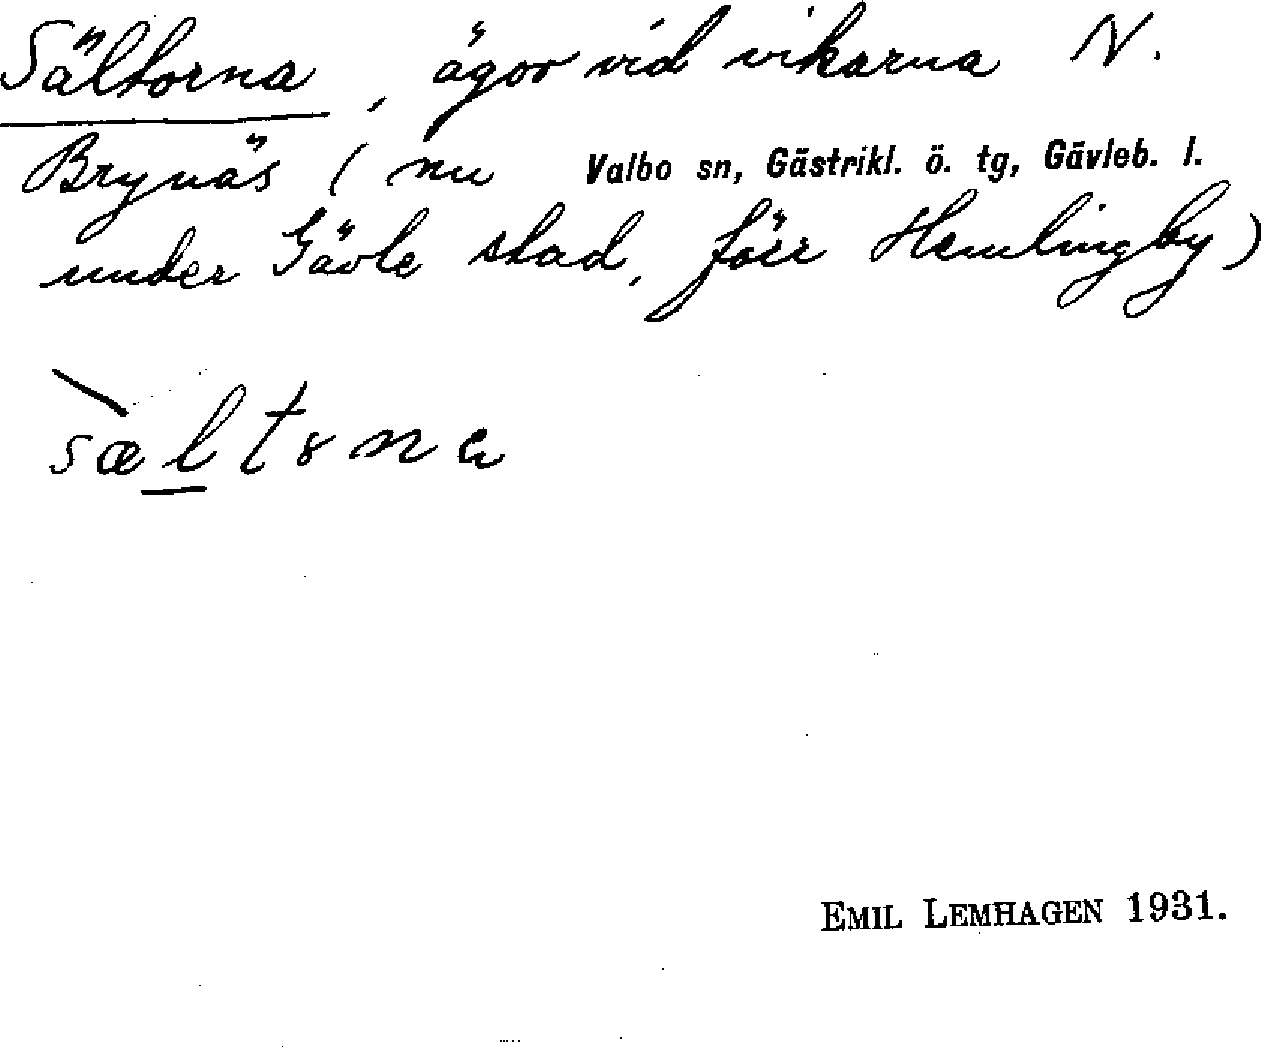 Sältorna, ägor vid vikarna N.
Brynäs (nu Valbo sn, Gästrikl. ö. tg, Gävleb. l.
under Gävle stad, förr Hemlingby)
sæltɤna
EMIL LEMHAGEN 1931.